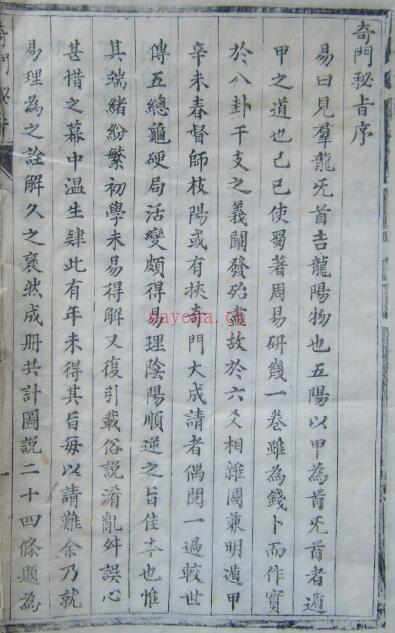 奇門秘旨序
易曰見羣龍旡首吉龍陽物也五陽以甲為首旡首者遁
甲之道也己巳使蜀著周易研幾一卷雖為錢卜而作實
於八卦干支之義闡發殆盡故於六爻相雜圖兼明遁甲
辛未春督師枝陽或有挾奇門大成請者偶閱一過較世
傳五總龜硬局活變頗得易理陰陽順逆之旨佳本也惟
其端緒紛繁初學未易得解又復引載俗說淆亂舛誤心
甚惜之幕中温生肄此有年未得其旨每以請難余乃就
易理為之詮解久之裒然成冊共計圖說二十四條題為
奇門秘